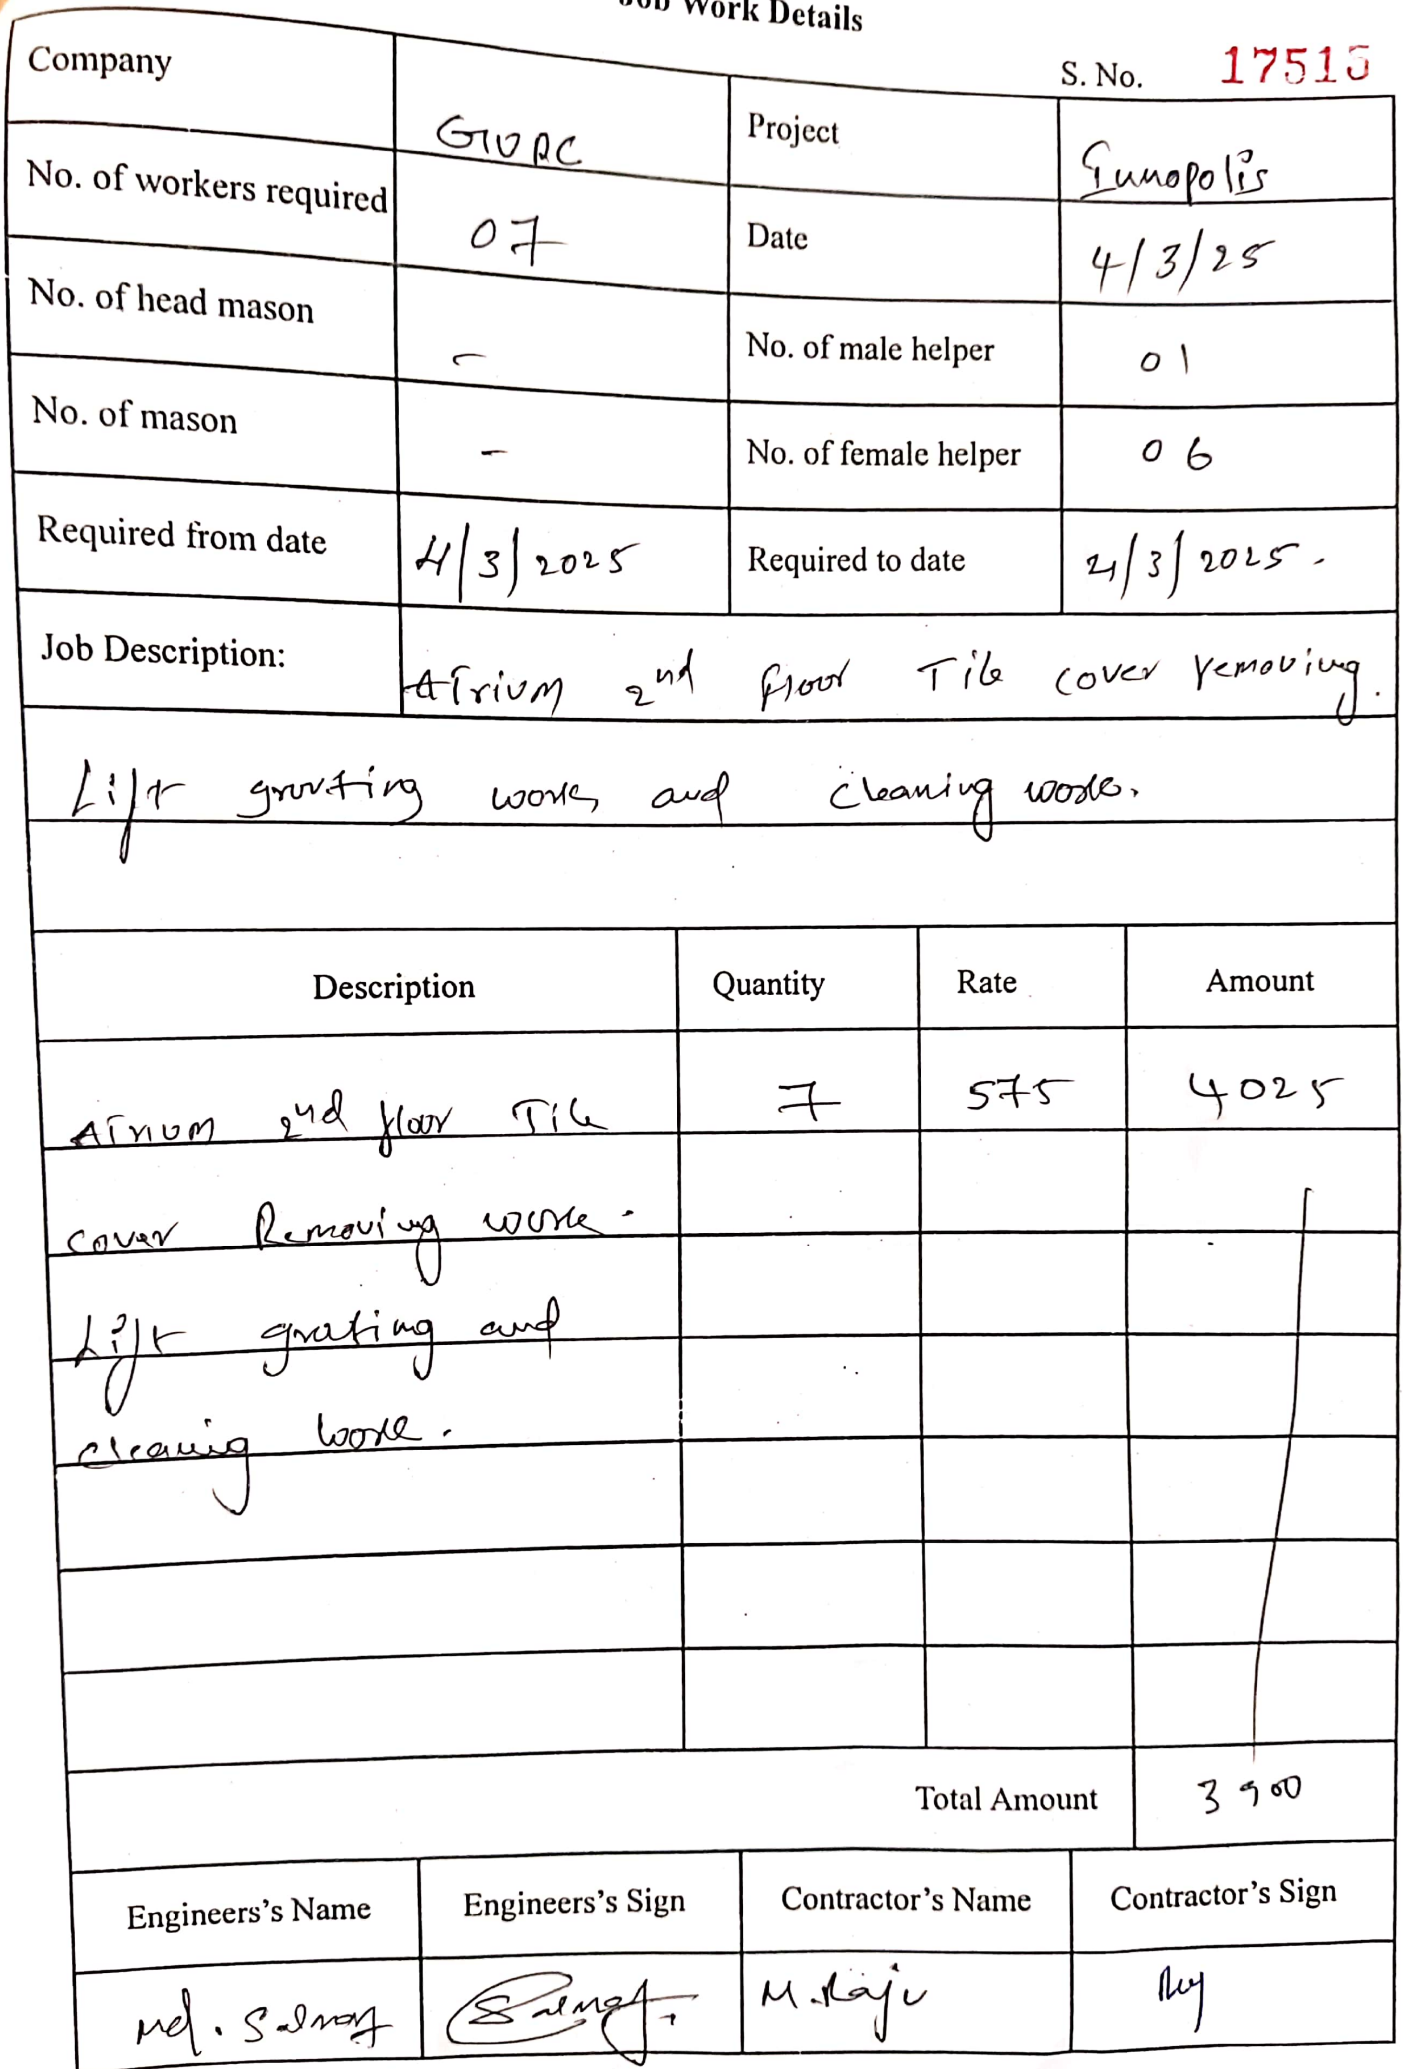 Job Work Details
S. No. 17515
Company GVRC Project Eunopolis
No. of workers required 07 Date 4/3/25
No. of head mason - No. of male helper 01
No. of mason - No. of female helper 06
Required from date 4/3/2025 Required to date 4/3/2025.
Job Description: Atrium 2nd floor Tile cover removing.
Lift grouting work and cleaning work.
Description Quantity Rate Amount
Atrium 2nd floor Tile 7 575 4025
cover Removing work.
Lift grating and
cleaning work.
Total Amount 3900
Engineers's Name Engineers's Sign Contractor's Name Contractor's Sign
Md. M. Raju